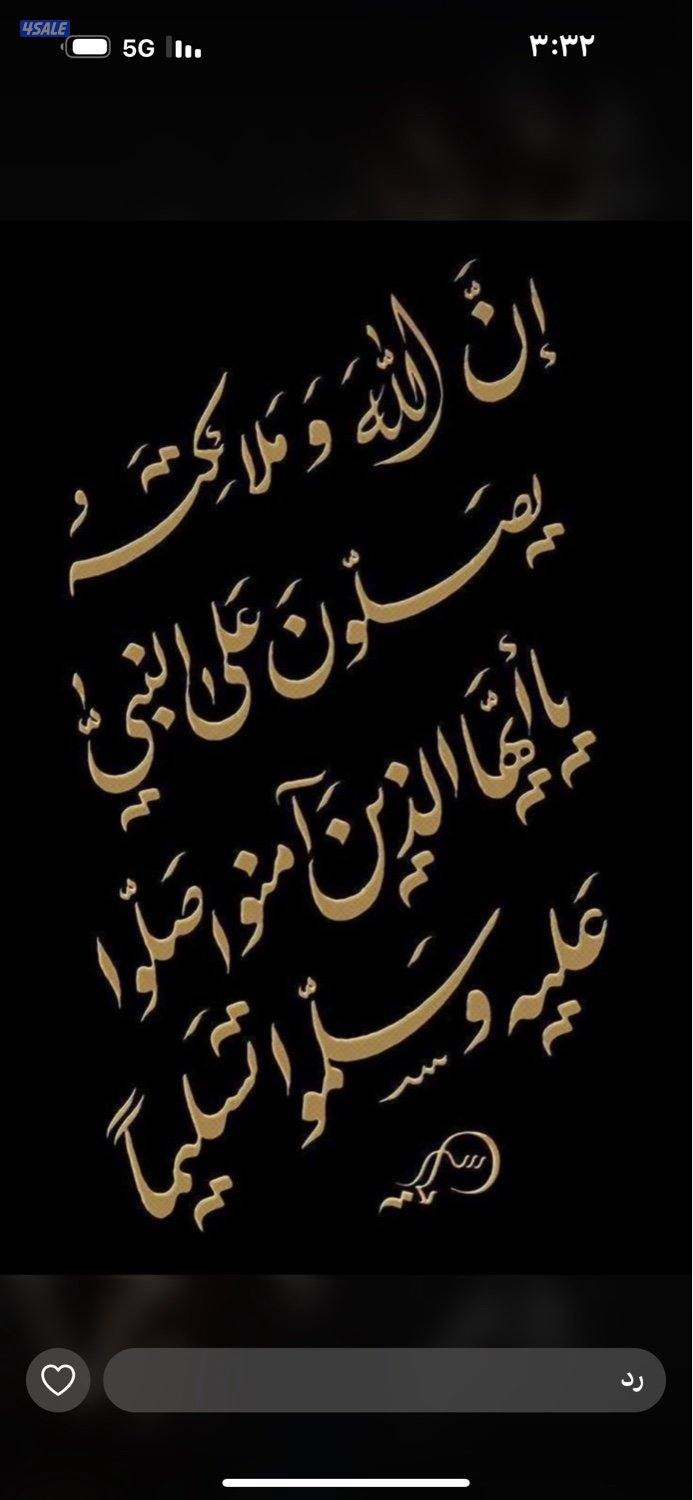 4SALE
5G
٣:٣٢
إنَّ اللَّهَ وَمَلَائِكَتَهُ
يصَلّونَ عَلى النبيِّ
يا أيّها الذين آمنوا صَلّوا
عَليه وسَلّموا تَسليماً
رد